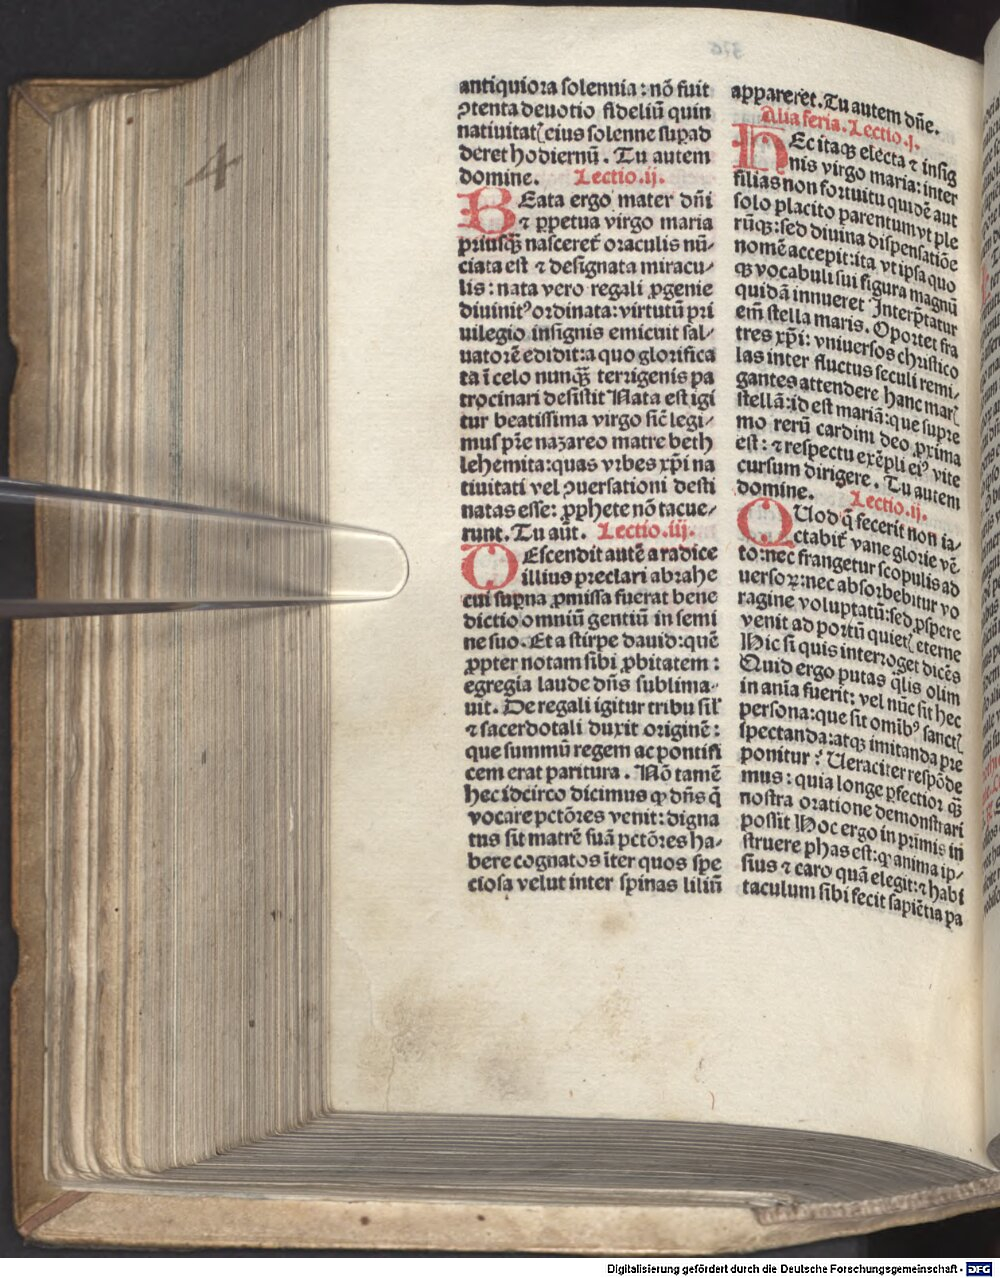 antiquiora solennia : nõ fuit
ꝯtenta deuotio fideliũ quin
natiuitatꝭ eius solenne suꝑad
deret hodiernũ . Tu autem
domine. Lectio .ij.
BEata ergo mater dñi
⁊ ꝑpetua virgo maria
priusqȝ̃ nasceret᷑ oraculis nũ⸗
ciata est ⁊ designata miracu⸗
lis : nata vero regali ꝓgenie
diuinitꝰ ordinata: virtutũ pri
uilegio insignis emicuit sal⸗
uatorẽ edidit: a quo glorifica
ta ĩ celo nunqȝ̃ terrigenis pa
trocinari desistit Nata est igi
tur beatissima virgo sič legi⸗
mus pr̃e nazareo matre beth
lehemita: quas vrbes xp̃i na
tiuitati vel ꝯuersationi desti
natas esse: ꝓphete nõ tacue⸗
runt. Tu aũt. Lectio .iij.
DEscendit autẽ a radice
illius preclari abrahe
cui suꝑna ꝓmissa fuerat bene
dictio omniũ gentiũ in semi
ne suo. Et a stirpe dauid: quẽ
ꝓpter notam sibi ꝓbitatem :
egregia laude dñs sublima⸗
uit. De regali igitur tribu sil̕
⁊ sacerdotali duxit originẽ :
que summũ regem ac pontifi
cem erat paritura . Nõ tamẽ
hec idcirco dicimus ꝙ dñs q̃
vocare pctõres venit: digna
tus sit matrẽ suã pctõres ha⸗
bere cognatos ĩter quos spe
ciosa velut inter spinas liliũ
appareret. Tu autem dñe.
Alia feria. Lectio .j.
HEc itaqȝ electa ⁊ insig
nis virgo maria: inter
filias non fortuitu quidẽ aut
solo placito parentum vt ple
rũqȝ: sed diuina dispensatiõe
nomẽ accepit: ita vt ipsa quo
qȝ vocabuli sui figura magnũ
quidã innueret Interp̃tatur
em̃ stella maris. Oportet fra
tres xp̃i: vniuersos christico
las inter fluctus seculi remi⸗
gantes attendere hanc marꝭ
stellã: id est mariã: que supre
mo rerũ cardini deo ꝓxima
est: ⁊ respectu exẽpli eiꝰ vite
cursum dirigere. Tu autem
domine. Lectio .ij.
QUod q̃ fecerit non ia⸗
ctabit᷑ vane glorie vẽ
to: nec frangetur scopulis ad
uersoꝝ: nec absorbebitur vo
ragine voluptatũ: sed ꝓspere
venit ad portũ quietꝭ eterne
Hic si quis interroget dicẽs
Quid ergo putas q̃lis olim
in aĩa fuerit: vel nũc sit hec
persona: que sit omibꝰ sanctꝭ
spectanda: atqȝ imitanda pre
ponitur : Ueraciter respõde
mus : quia longe ꝑfectior qȝ̃
nostra oratione demonstrari
possit Hoc ergo in primis in
struere phas est: ꝙ anima ip⸗
sius ⁊ caro quã elegit: ⁊ habi
taculum sibi fecit sapiẽtia pa
Digitalisierung gefördert durch die Deutsche Forschungsgemeinschaft - DFG